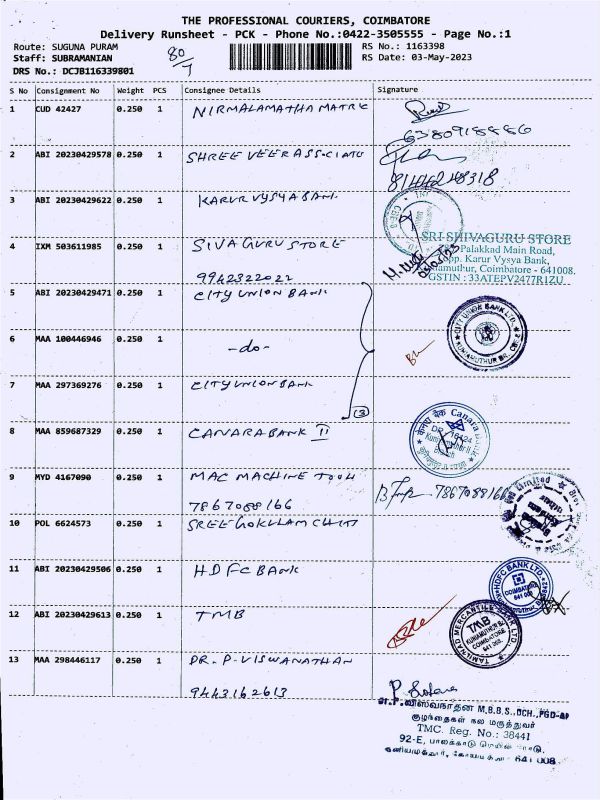 THE PROFESSIONAL COURIERS, COIMBATORE
Delivery Runsheet - PCK - Phone No.:0422-3505555 - Page No.:1
Route: SUGUNA PURAM
RS No.: 1163398
Staff: SUBRAMANIAN
80/7
RS Date: 03-May-2023
DRS No.: DCJB116339801
S No Consignment No Weight PCS Consignee Details Signature
1 CUD 42427 0.250 1 NIRMALAMATHA MATRIC
2 ABI 20230429578 0.250 1 SHREE VEER ASSOCIATE
8144248318
3 ABI 20230429622 0.250 1 KARUR VYSYA BANK
4 IXM 503611985 0.250 1 SIVA GURU STORE
9942322022
SRI SHIVAGURU STORE
Palakkad Main Road,
Opp. Karur Vysya Bank,
Coimbatore - 641008.
GSTIN : 33ATEPV2477R1ZU
5 ABI 20230429471 0.250 1 CITY UNION BANK
CITY UNION BANK LTD.
KUNIAMUTHUR BR. CBE-8
6 MAA 100446946 0.250 1 -do-
7 MAA 297369276 0.250 1 CITY UNION BANK
(3)
8 MAA 859687329 0.250 1 CANARA BANK II
केनरा बैंक Canara
9 MYD 4167090 0.250 1 MAC MACHINE TOOL
7867088166
7867088166
10 POL 6624573 0.250 1 SREE GOKULAM CHIT
Limited
11 ABI 20230429506 0.250 1 HDFC BANK
HDFC BANK LTD.
COIMBATORE
12 ABI 20230429613 0.250 1 TMB
TAMILNAD MERCANTILE BANK LTD.
TMB
KUNIAMUTHUR BR
COIMBATORE
13 MAA 298446117 0.250 1 DR. P. VISWANATHAN
9443162613
விஸ்வநாதன் M.B.B.S., DCH., PGD-AP
குழந்தைகள் நல மருத்துவர்
TMC. Reg. No.: 38441
92-E, பாலக்காடு மெயின் ரோடு,
641 008.